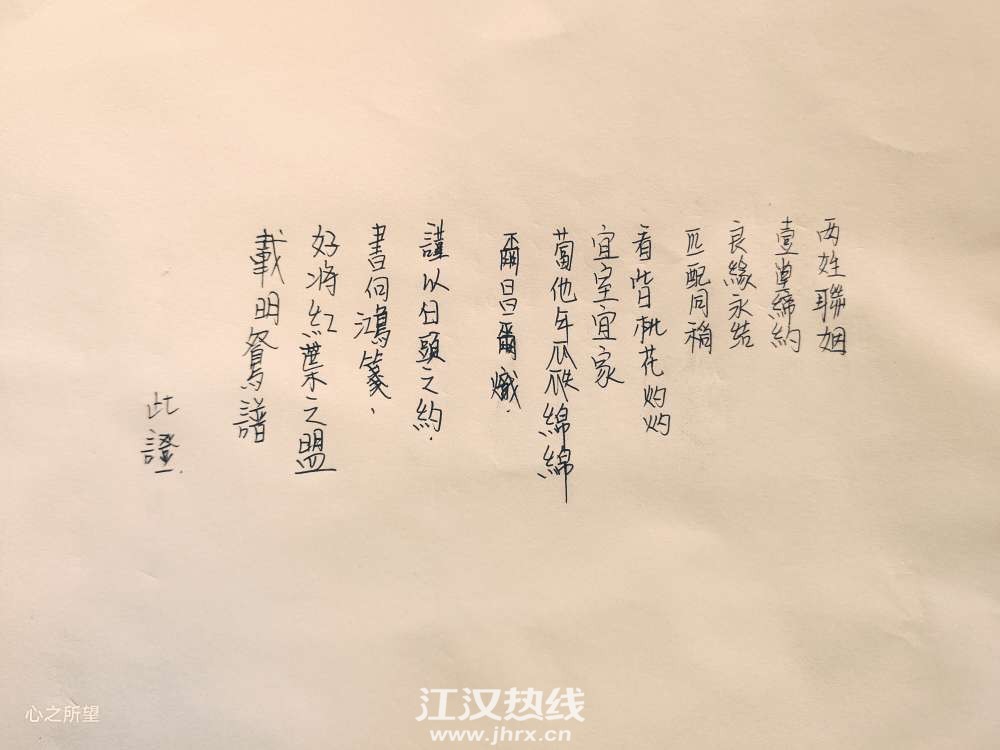 两姓聯姻
壹堂締約
良緣永結
匹配同稱
看皆日桃花灼灼
宜室宜家
當他年瓜瓞綿綿
爾昌爾熾.
謹以白頭之約.
書向鴻箋、
好將紅葉之盟
載明鴛譜
此證.
心之所望
江汉热线
www.jhrx.cn